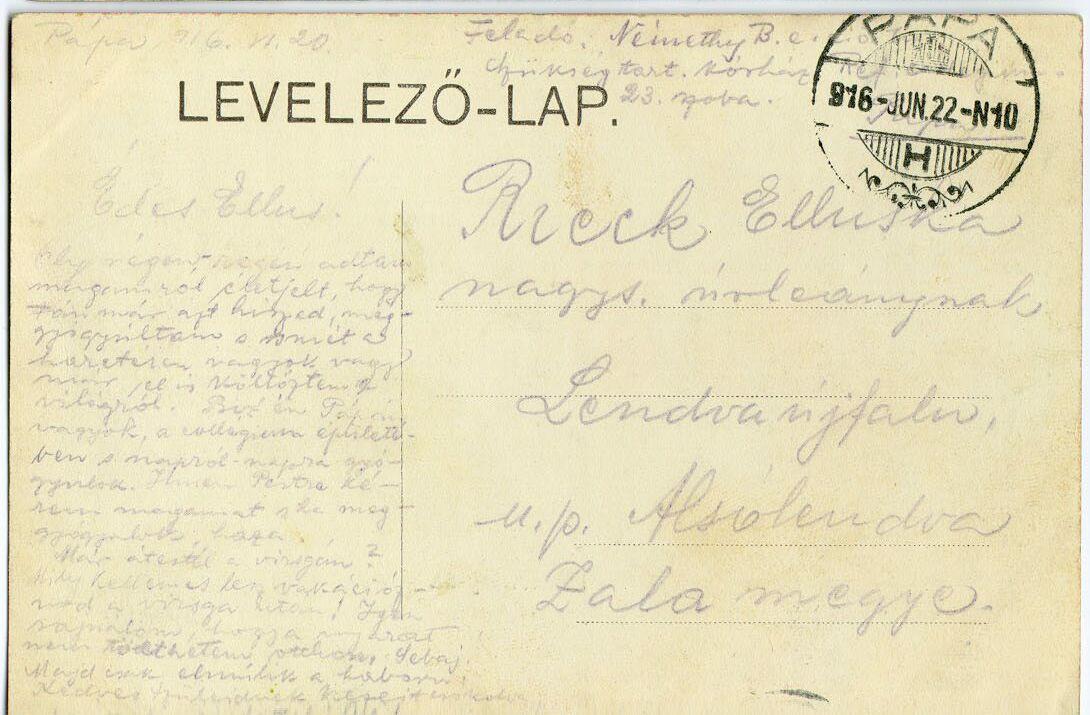 Pápa 916. VI. 20.
Feladó: Némethy B. e.
szükségtart. kórház Ref.
23. szoba.
Pápa
LEVELEZŐ-LAP.
PÁPA
916-JUN.22-N10
H
Édes Ellus!
Oly régen, régen adtam
magamról életjelt, hogy
tán már azt hiszed, meg-
gyógyultam s ismét a
harctéren vagyok vagy
már el is költöztem a
világról. Biz én Pápán
vagyok, a collegium épületé-
ben s napról-napra gyó-
gyulok. Innen Pestre ké-
rem magamat s ha meg-
gyógyulok, haza.
Már átestél a vizsgán?
Mily kellemes lesz vakáció-
nod a vizsga után! Igen
sajnálom, hogy a nyarat
nem tölthetem otthon. Sebaj.
Majd csak elmúlik a háború.
Kedves szüleidnek kezeit csókolva
Rieck Elluska
nagys. úrleánynak
Lendvaújfalu,
u. p. Alsólendva
Zala megye.